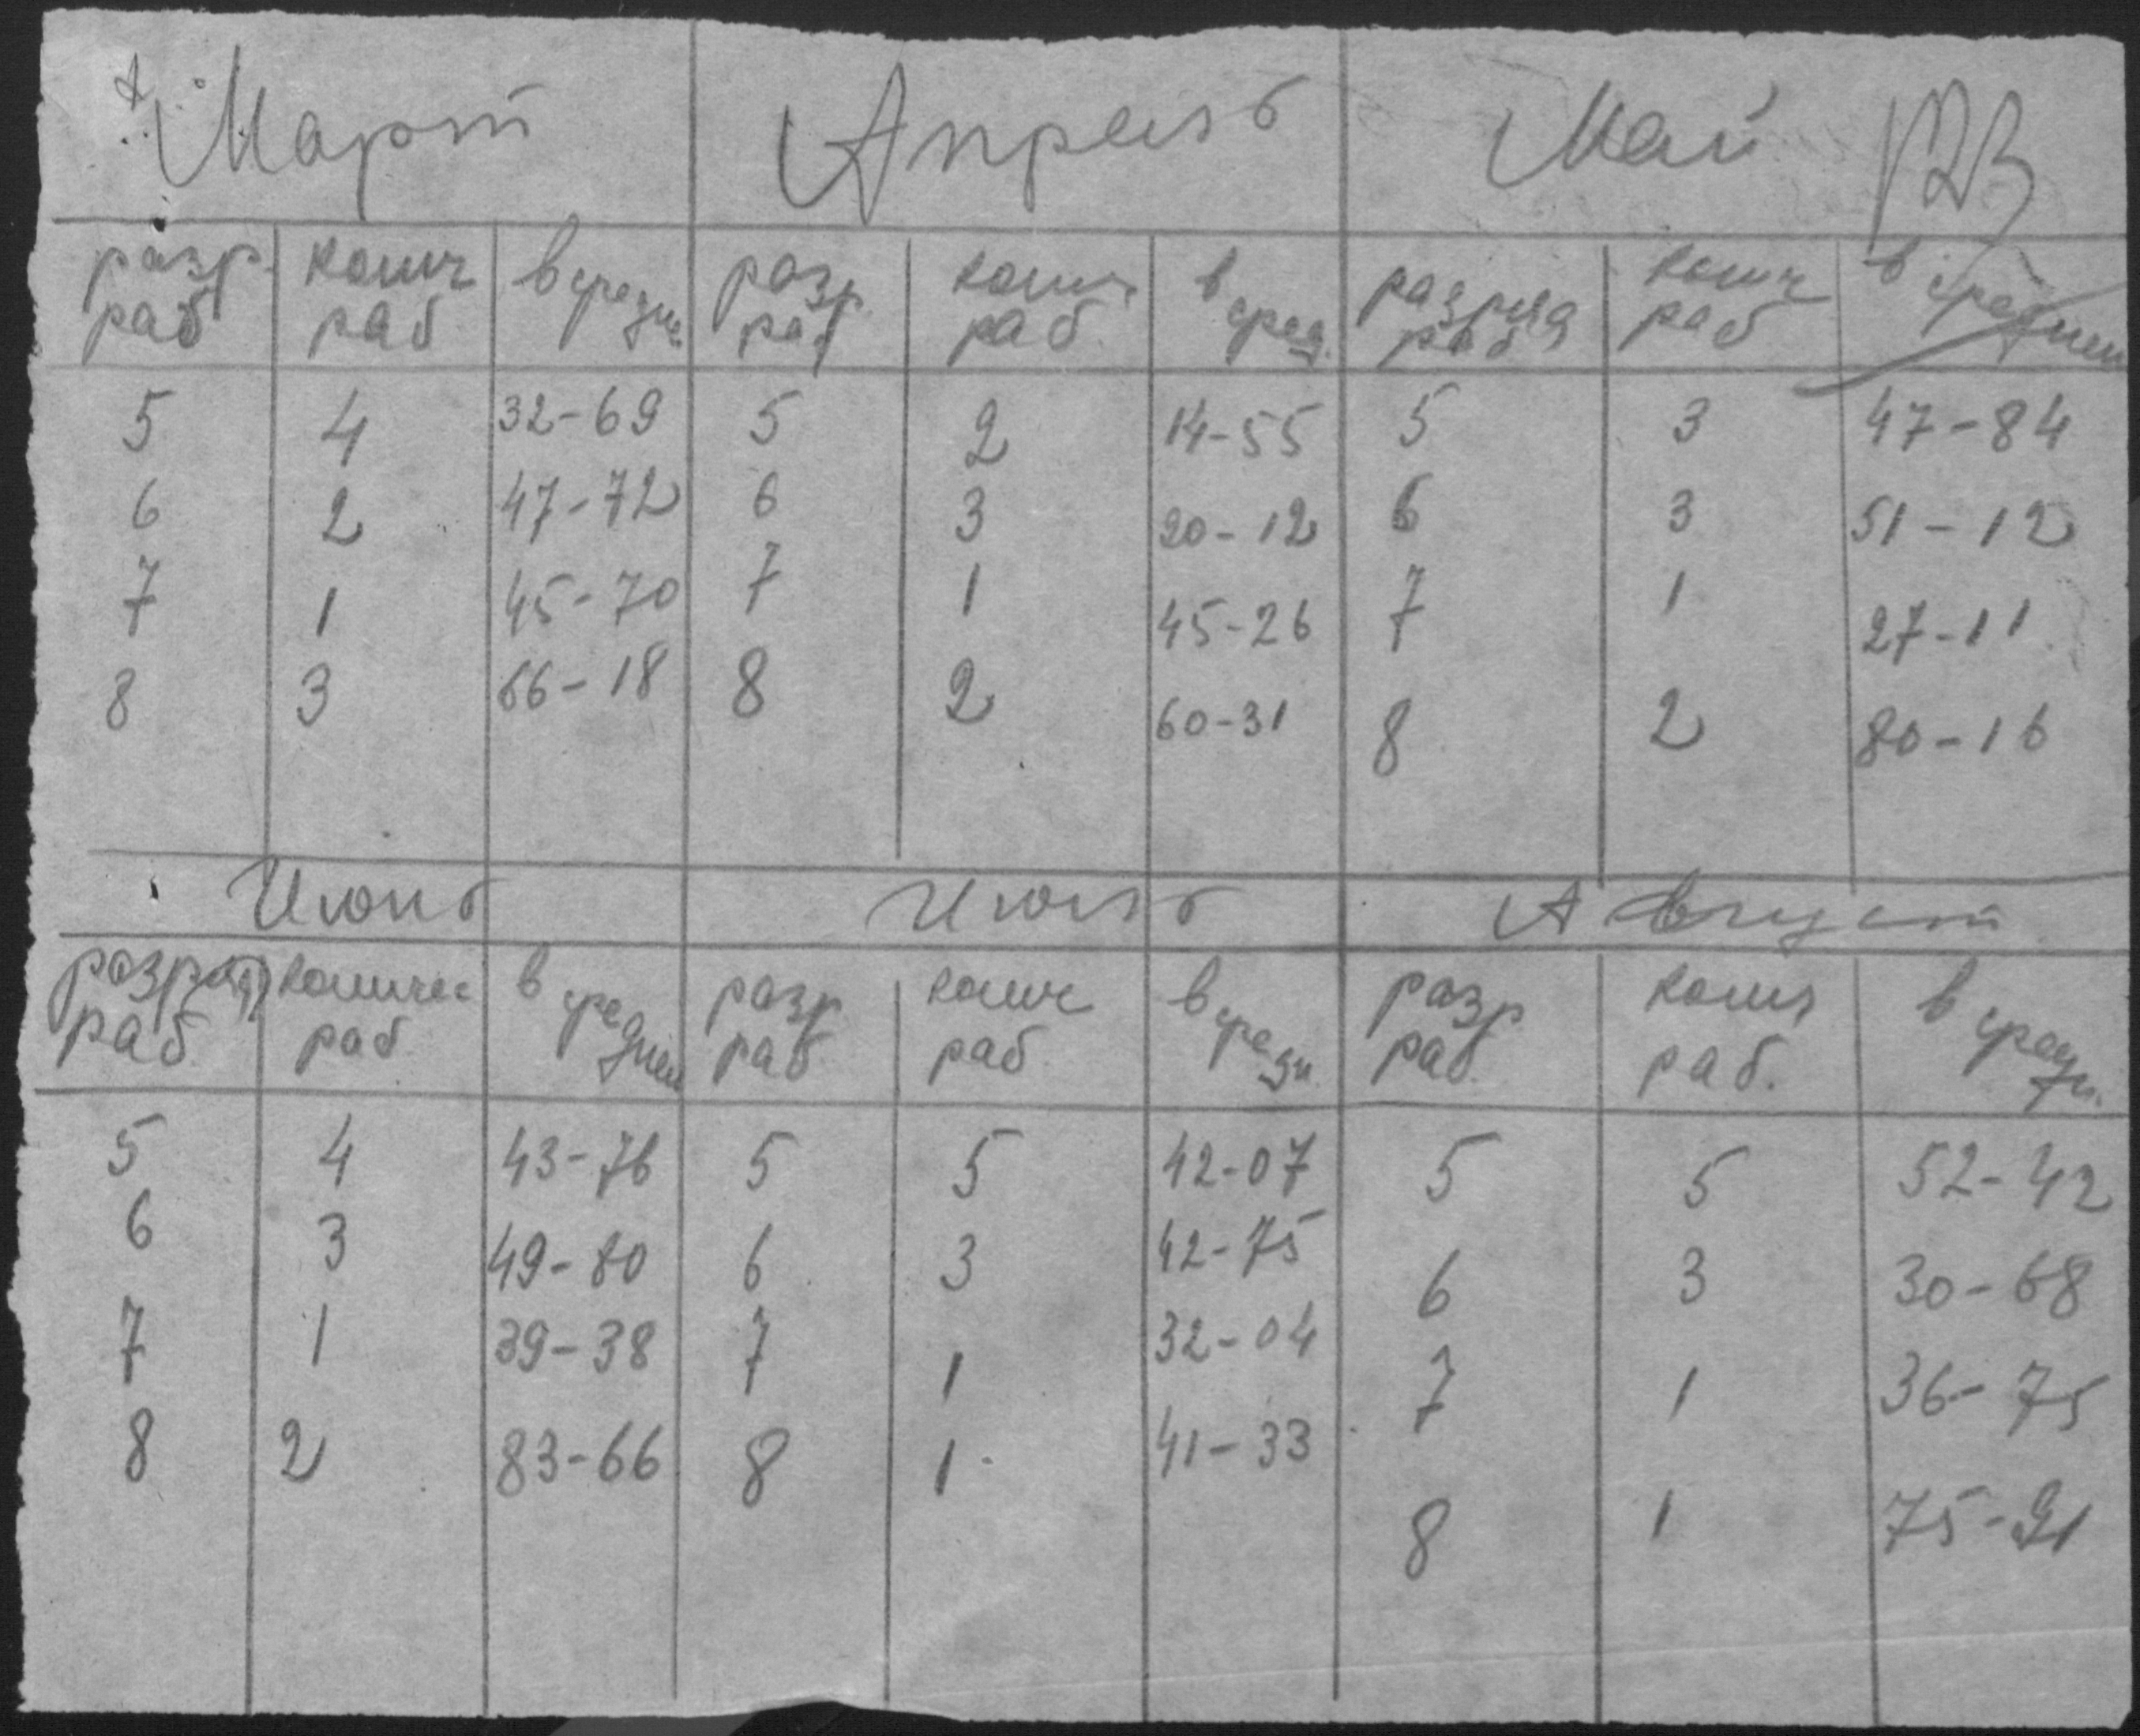 Март Апрель Май 123
разр. колич в средне. разр. колич. в сред. разряд колич в среднем
раб раб раб раб. раб раб
5 4 32-69 5 2 14-55 5 3 47-84
6 2 47-72 6 3 20-12 6 3 51-12
7 1 45-70 7 1 45-26 7 1 27-11
8 3 66-18 8 2 60-31 8 2 80-16
Июнь Июль Август
разряд количес в среднем разр колич в средн. разр колич в средн.
раб раб раб раб раб. раб.
5 4 43-76 5 5 42-07 5 5 52-42
6 3 49-80 6 3 42-75 6 3 30-68
7 1 39-38 7 1 32-04 7 1 36-75
8 2 83-66 8 1 41-33 8 1 75-91